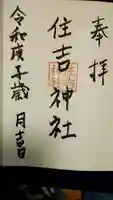 奉拝
住吉神社
令和庚子歳 月吉日